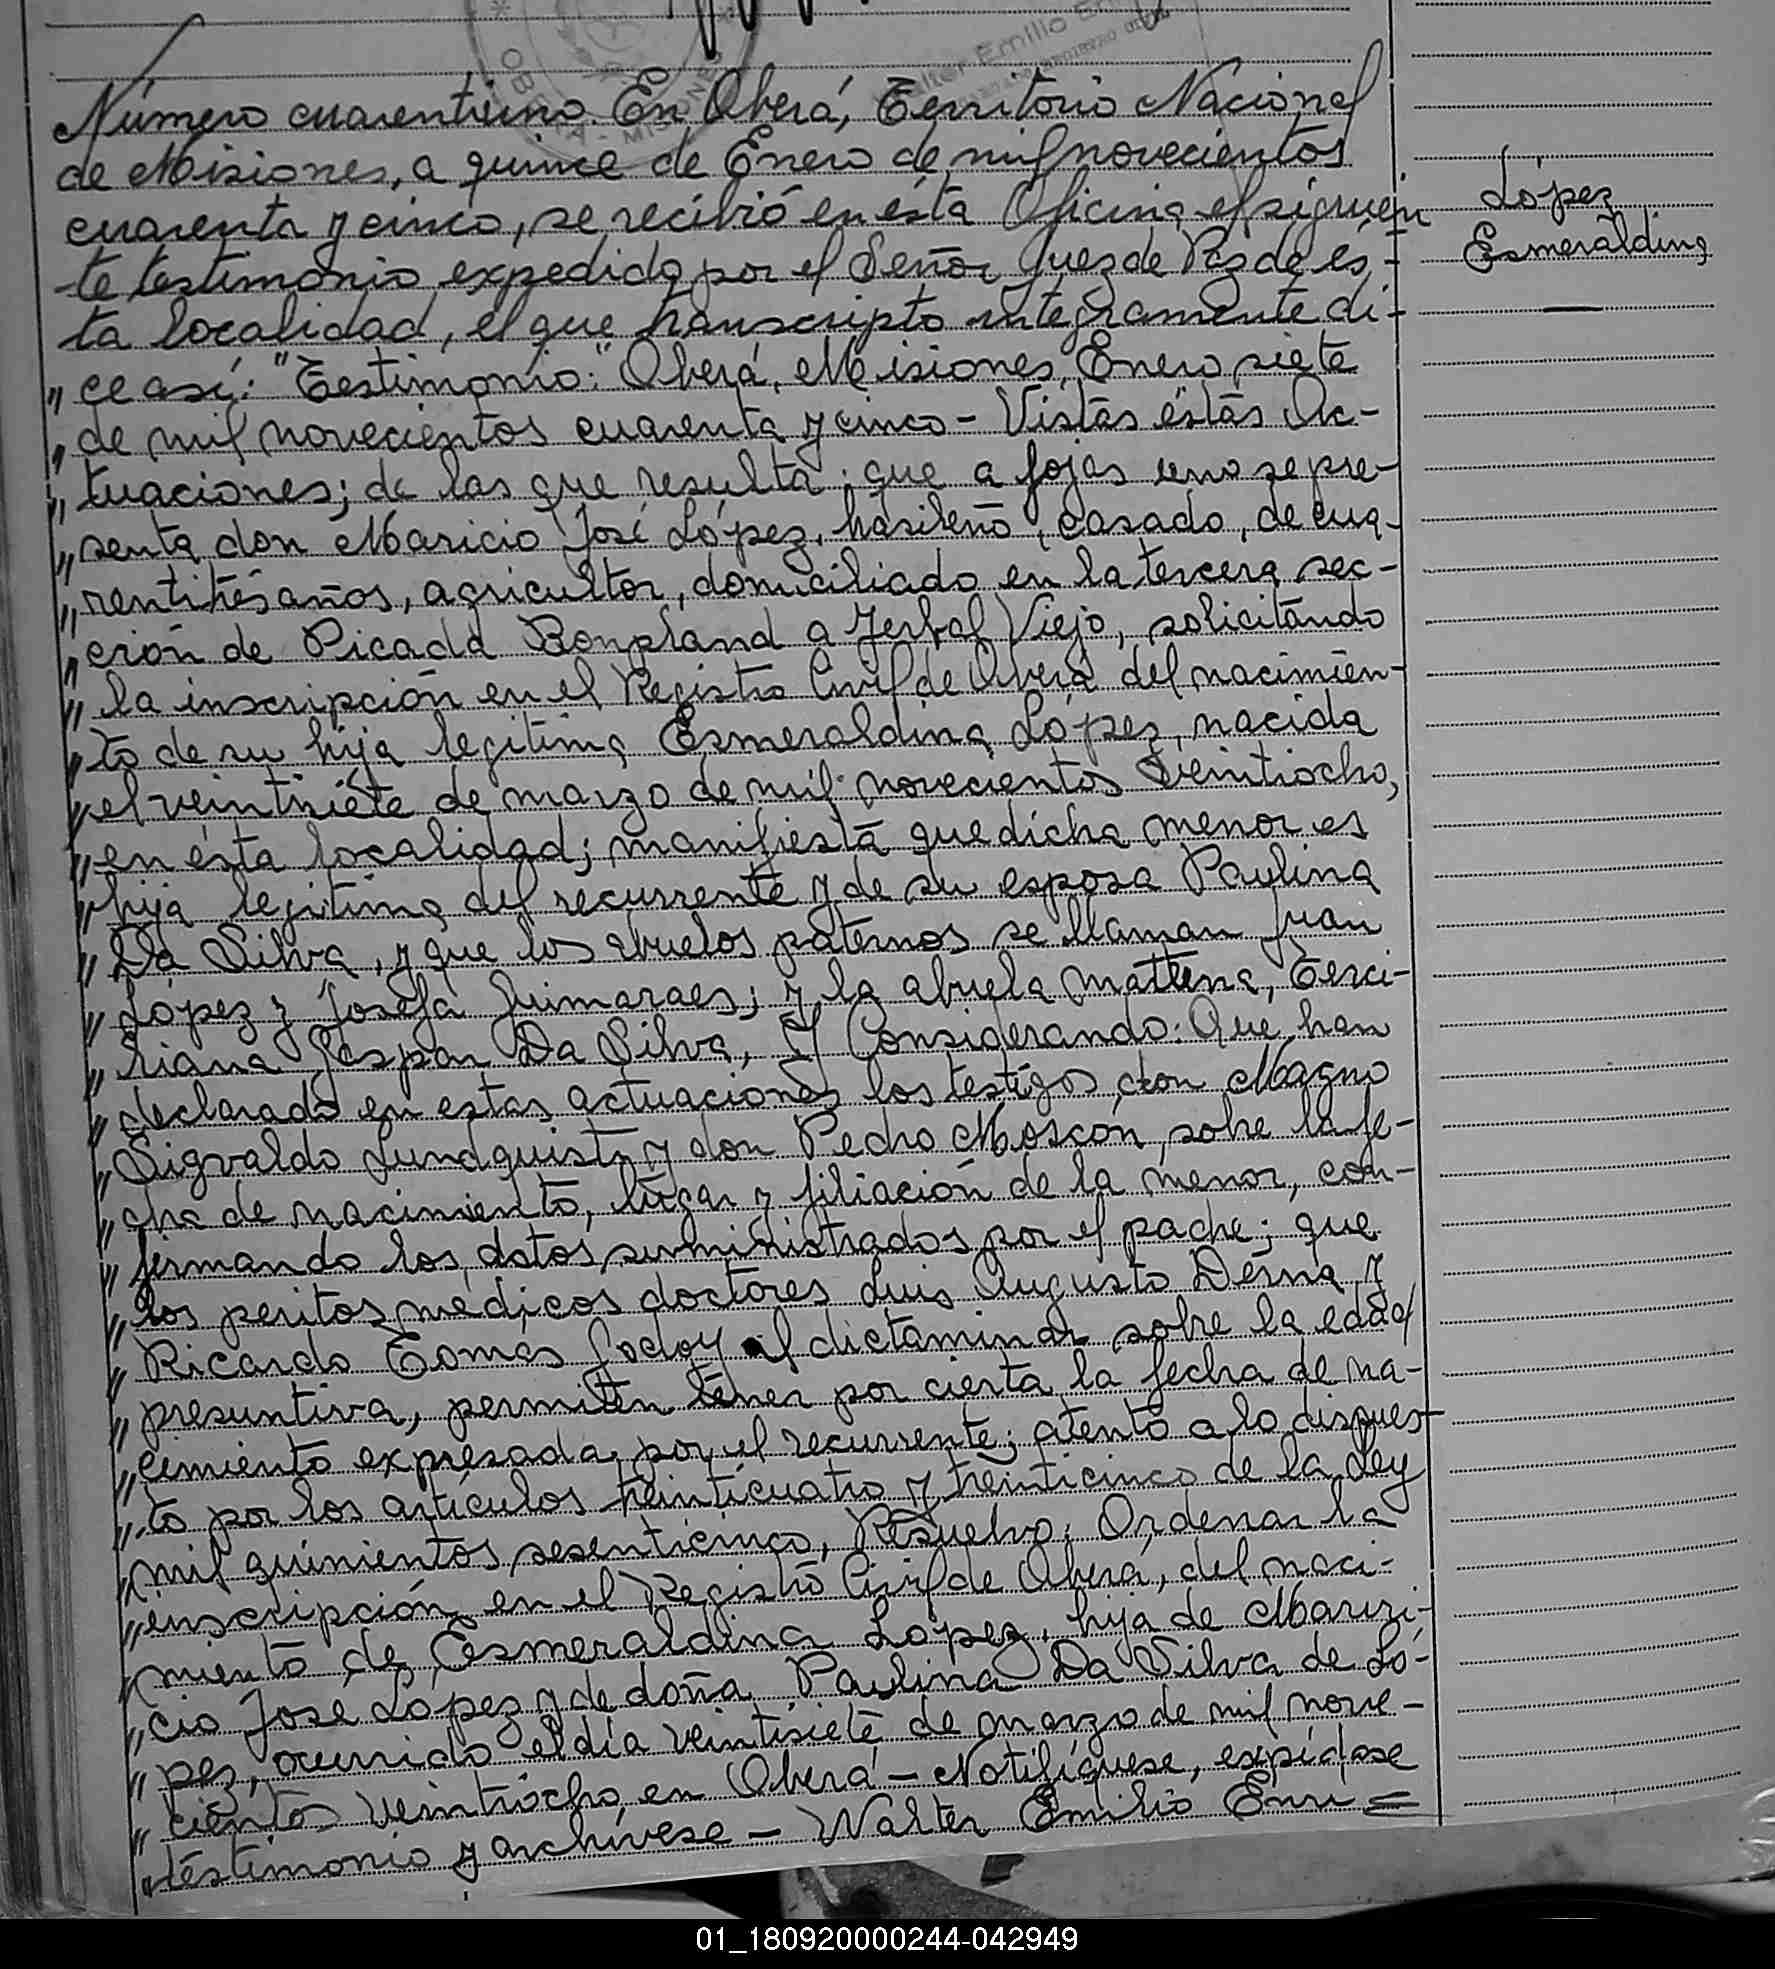 OBERÁ - MISIONES
Walter Emilio En
Número cuarentiuno. En Oberá, Territorio Nacional
de Misiones, a quince de Enero de mil novecientos
cuarenta y cinco, se recibió en ésta Oficina el siguien
te testimonio expedido por el Señor Juez de Paz de és-
ta localidad, el que transcripto integramente di-
" ce así: "Testimonio:" Oberá, Misiones, Enero siete
" de mil novecientos cuarenta y cinco - Vistas éstas Ac-
" tuaciones; de las que resulta: que a fojas uno se pre-
" senta don Maricio José López, brasileño, casado, de cua-
" rentitrés años, agricultor, domiciliado en la tercera sec-
" ción de Picada Bonpland a Yerbal Viejo, solicitando
" la inscripción en el Registro Civil de Oberá del nacimien-
" to de su hija legítima Esmeraldina López, nacida
" el veintisiete de marzo de mil novecientos veintiocho,
" en ésta localidad; manifiesta que dicha menor es
" hija legítima del recurrente y de su esposa Paulina
" Da Silva, y que los abuelos paternos se llaman Juan
" López y Josefa Guimaraes; y la abuela materna, Terci-
" liana Gaspar Da Silva, Y Considerando: Que han
" declarado en estas actuaciones los testigos don Magno
" Sigvaldo Lundquist y don Pedro Moscon, sobre la fe-
" cha de nacimiento, lugar y filiación de la menor, con-
" firmando los datos suministrados por el padre; que
" los peritos médicos doctores Luis Augusto Derna y
" Ricardo Tomás Godoy al dictaminar sobre la edad
" presuntiva, permiten tener por cierta la fecha de na-
" cimiento expresada por el recurrente; atento a lo dispues-
" to por los artículos treinticuatro y treinticinco de la Ley
" mil quinientos sesenticinco, Resuelvo: Ordenar la
" inscripción en el Registro Civil de Oberá, del naci-
" miento de Esmeraldina López, hija de Mauri-
" cio José López y de doña Paulina Da Silva de Ló-
" pez, ocurrido el día veintisiete de marzo de mil nove-
" cientos veintiocho en Oberá - Notifíquese, expídase
" testimonio y archívese - Walter Emilio Enri=
López
Esmeraldina
01_180920000244-042949